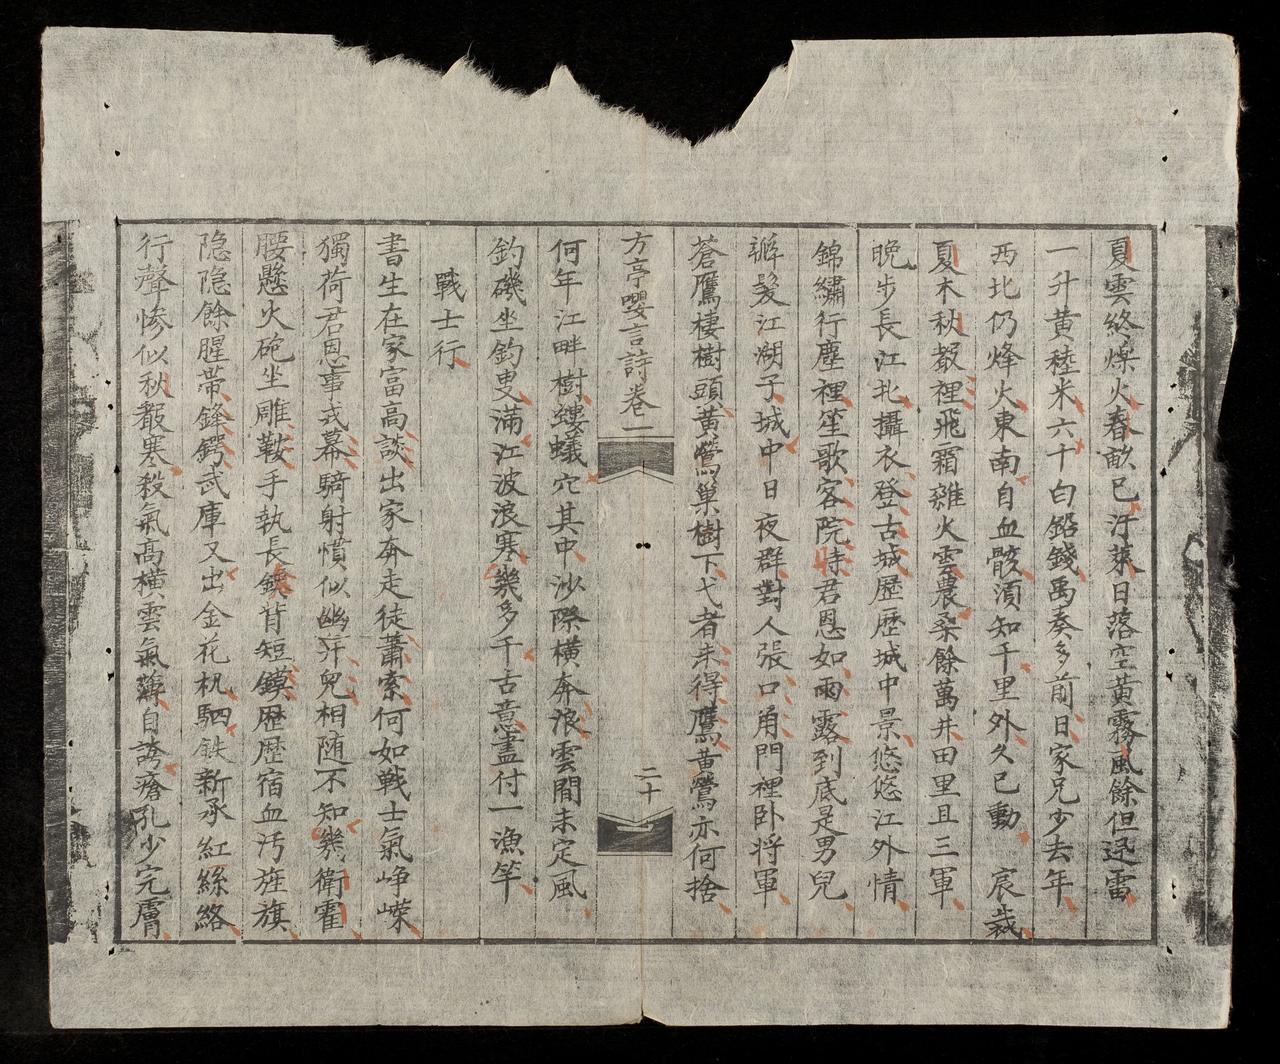 夏雲終煤火春畝已汙萊日落空黃霧風餘但迅雷
一升黃稑米六十白鉛錢禹奏多前日家兄少去年
西北仍烽火東南自血骸須知千里外久已動 宸裁
夏木秋聲裡飛霜雜火雲農桑餘萬井田里且三軍
晚步長江北攝衣登古城歷歷城中景悠悠江外情
錦繡行塵裡笙歌客院時君恩如雨露到底是男兒
辮髮江湖子城中日夜群對人張口角門裡卧将軍
蒼鷹棲樹頭黃鶯巢樹下弋者未得鷹黃鶯亦何捨
方亭嚶言詩卷一
二十
何年江畔樹螻蟻穴其中沙際橫奔浪雲間未定風
釣磯坐釣叟滿江波浪寒幾多千古意盡付一漁竿
戰士行
書生在家富高談出家奔走徒蕭索何如戰士氣崢嶸
獨荷君恩事戎幕騎射慣似幽并兒相随不知幾衛霍
腰懸火砲坐雕鞍手執長鏃背短鏌歷歷宿血汚旌旗
隐隐餘腥帶鋒鍔武庫又出金花杋駟鉄新承紅絲絡
行聲慘似秋聲寒殺氣高橫雲氣薄自誇瘡孔少完膚